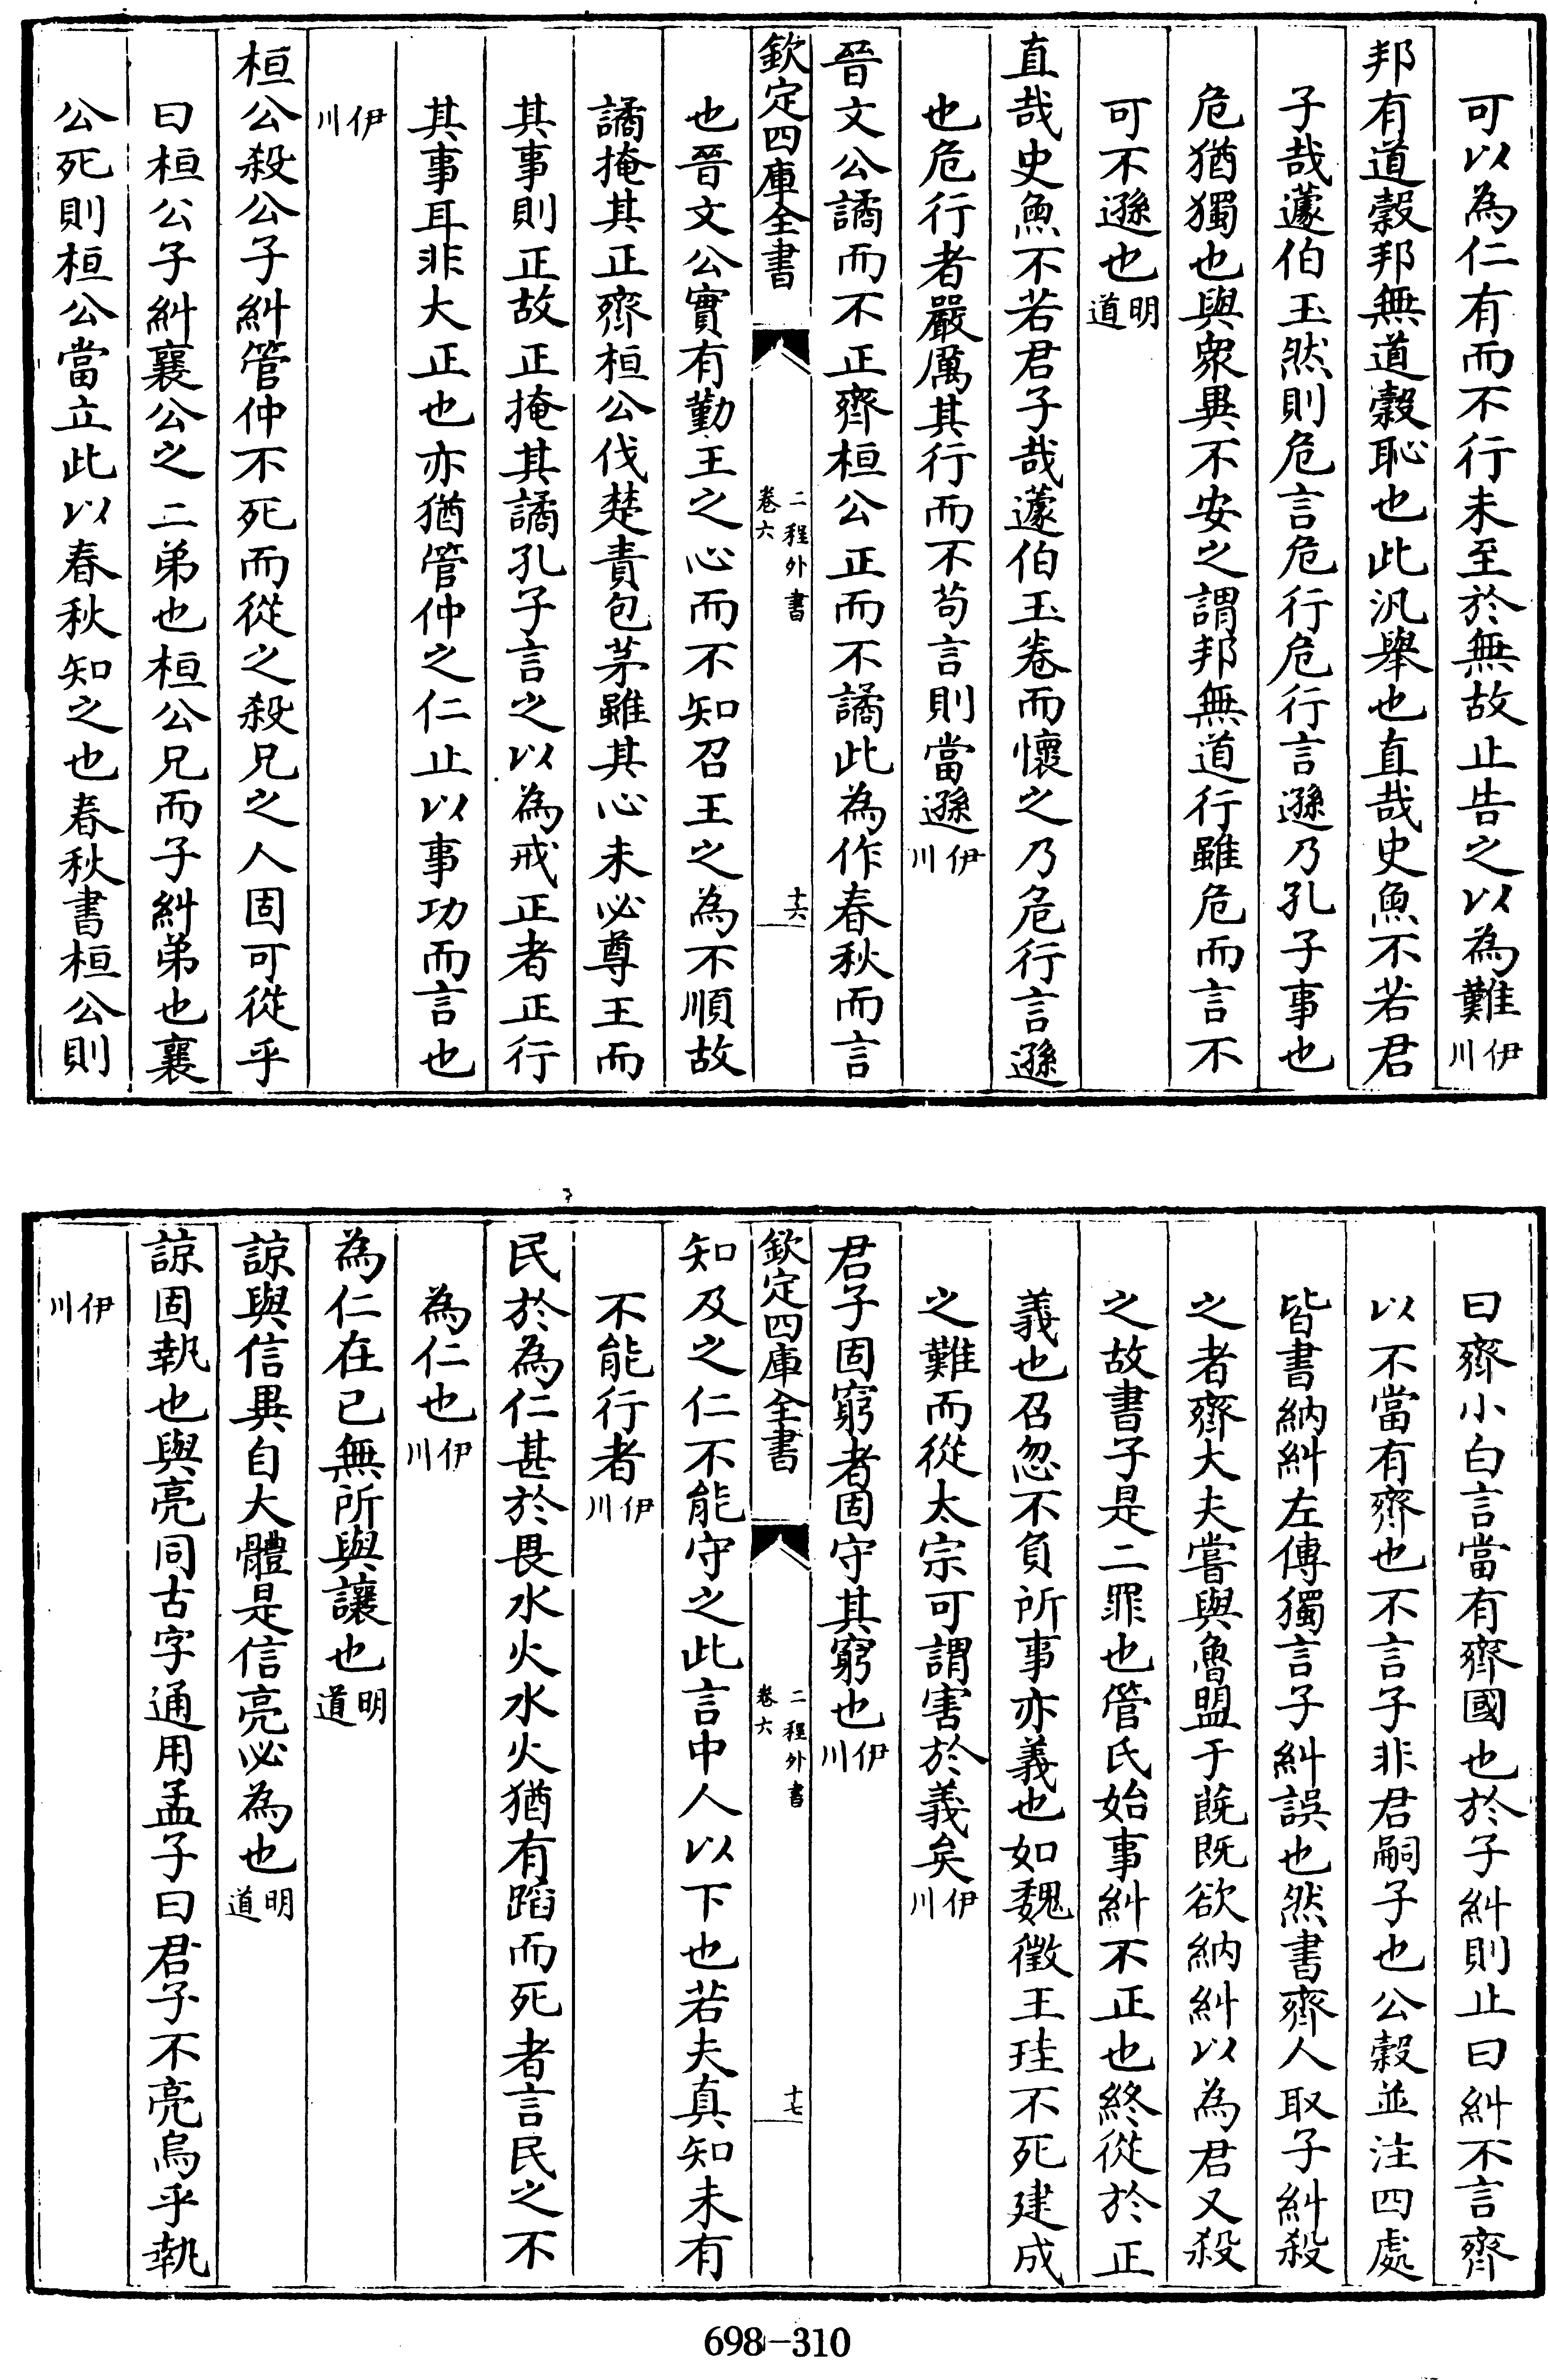 可以為仁有而不行未至於無故止告之以為難伊川
邦有道穀邦無道穀恥也此汎舉也直哉史魚不若君
子哉蘧伯玉然則危言危行危行言遜乃孔子事也
危猶獨也與衆異不安之謂邦無道行雖危而言不
可不遜也明道
直哉史魚不若君子哉蘧伯玉卷而懷之乃危行言遜
也危行者嚴厲其行而不苟言則當遜伊川
晉文公譎而不正齊桓公正而不譎此為作春秋而言
欽定四庫全書 二程外書卷六 十六
也晉文公實有勤王之心而不知召王之為不順故
譎掩其正齊桓公伐楚責包茅雖其心未必尊王而
其事則正故正掩其譎孔子言之以為戒正者正行
其事耳非大正也亦猶管仲之仁止以事功而言也
伊川
桓公殺公子糾管仲不死而從之殺兄之人固可從乎
曰桓公子糾襄公之二弟也桓公兄而子糾弟也襄
公死則桓公當立此以春秋知之也春秋書桓公則
曰齊小白言當有齊國也於子糾則止曰糾不言齊
以不當有齊也不言子非君嗣子也公穀並注四處
皆書納糾左傳獨言子糾誤也然書齊人取子糾殺
之者齊大夫嘗與魯盟于蔇既欲納糾以為君又殺
之故書子是二罪也管氏始事糾不正也終從於正
義也召忽不負所事亦義也如魏徵王珪不死建成
之難而從太宗可謂害於義矣伊川
君子固窮者固守其窮也伊川
欽定四庫全書 二程外書卷六 十七
知及之仁不能守之此言中人以下也若夫真知未有
不能行者伊川
民於為仁甚於畏水火水火猶有蹈而死者言民之不
為仁也伊川
為仁在已無所與讓也明道
諒與信異自大體是信亮必為也明道
諒固執也與亮同古字通用孟子曰君子不亮烏乎執
伊川
698-310